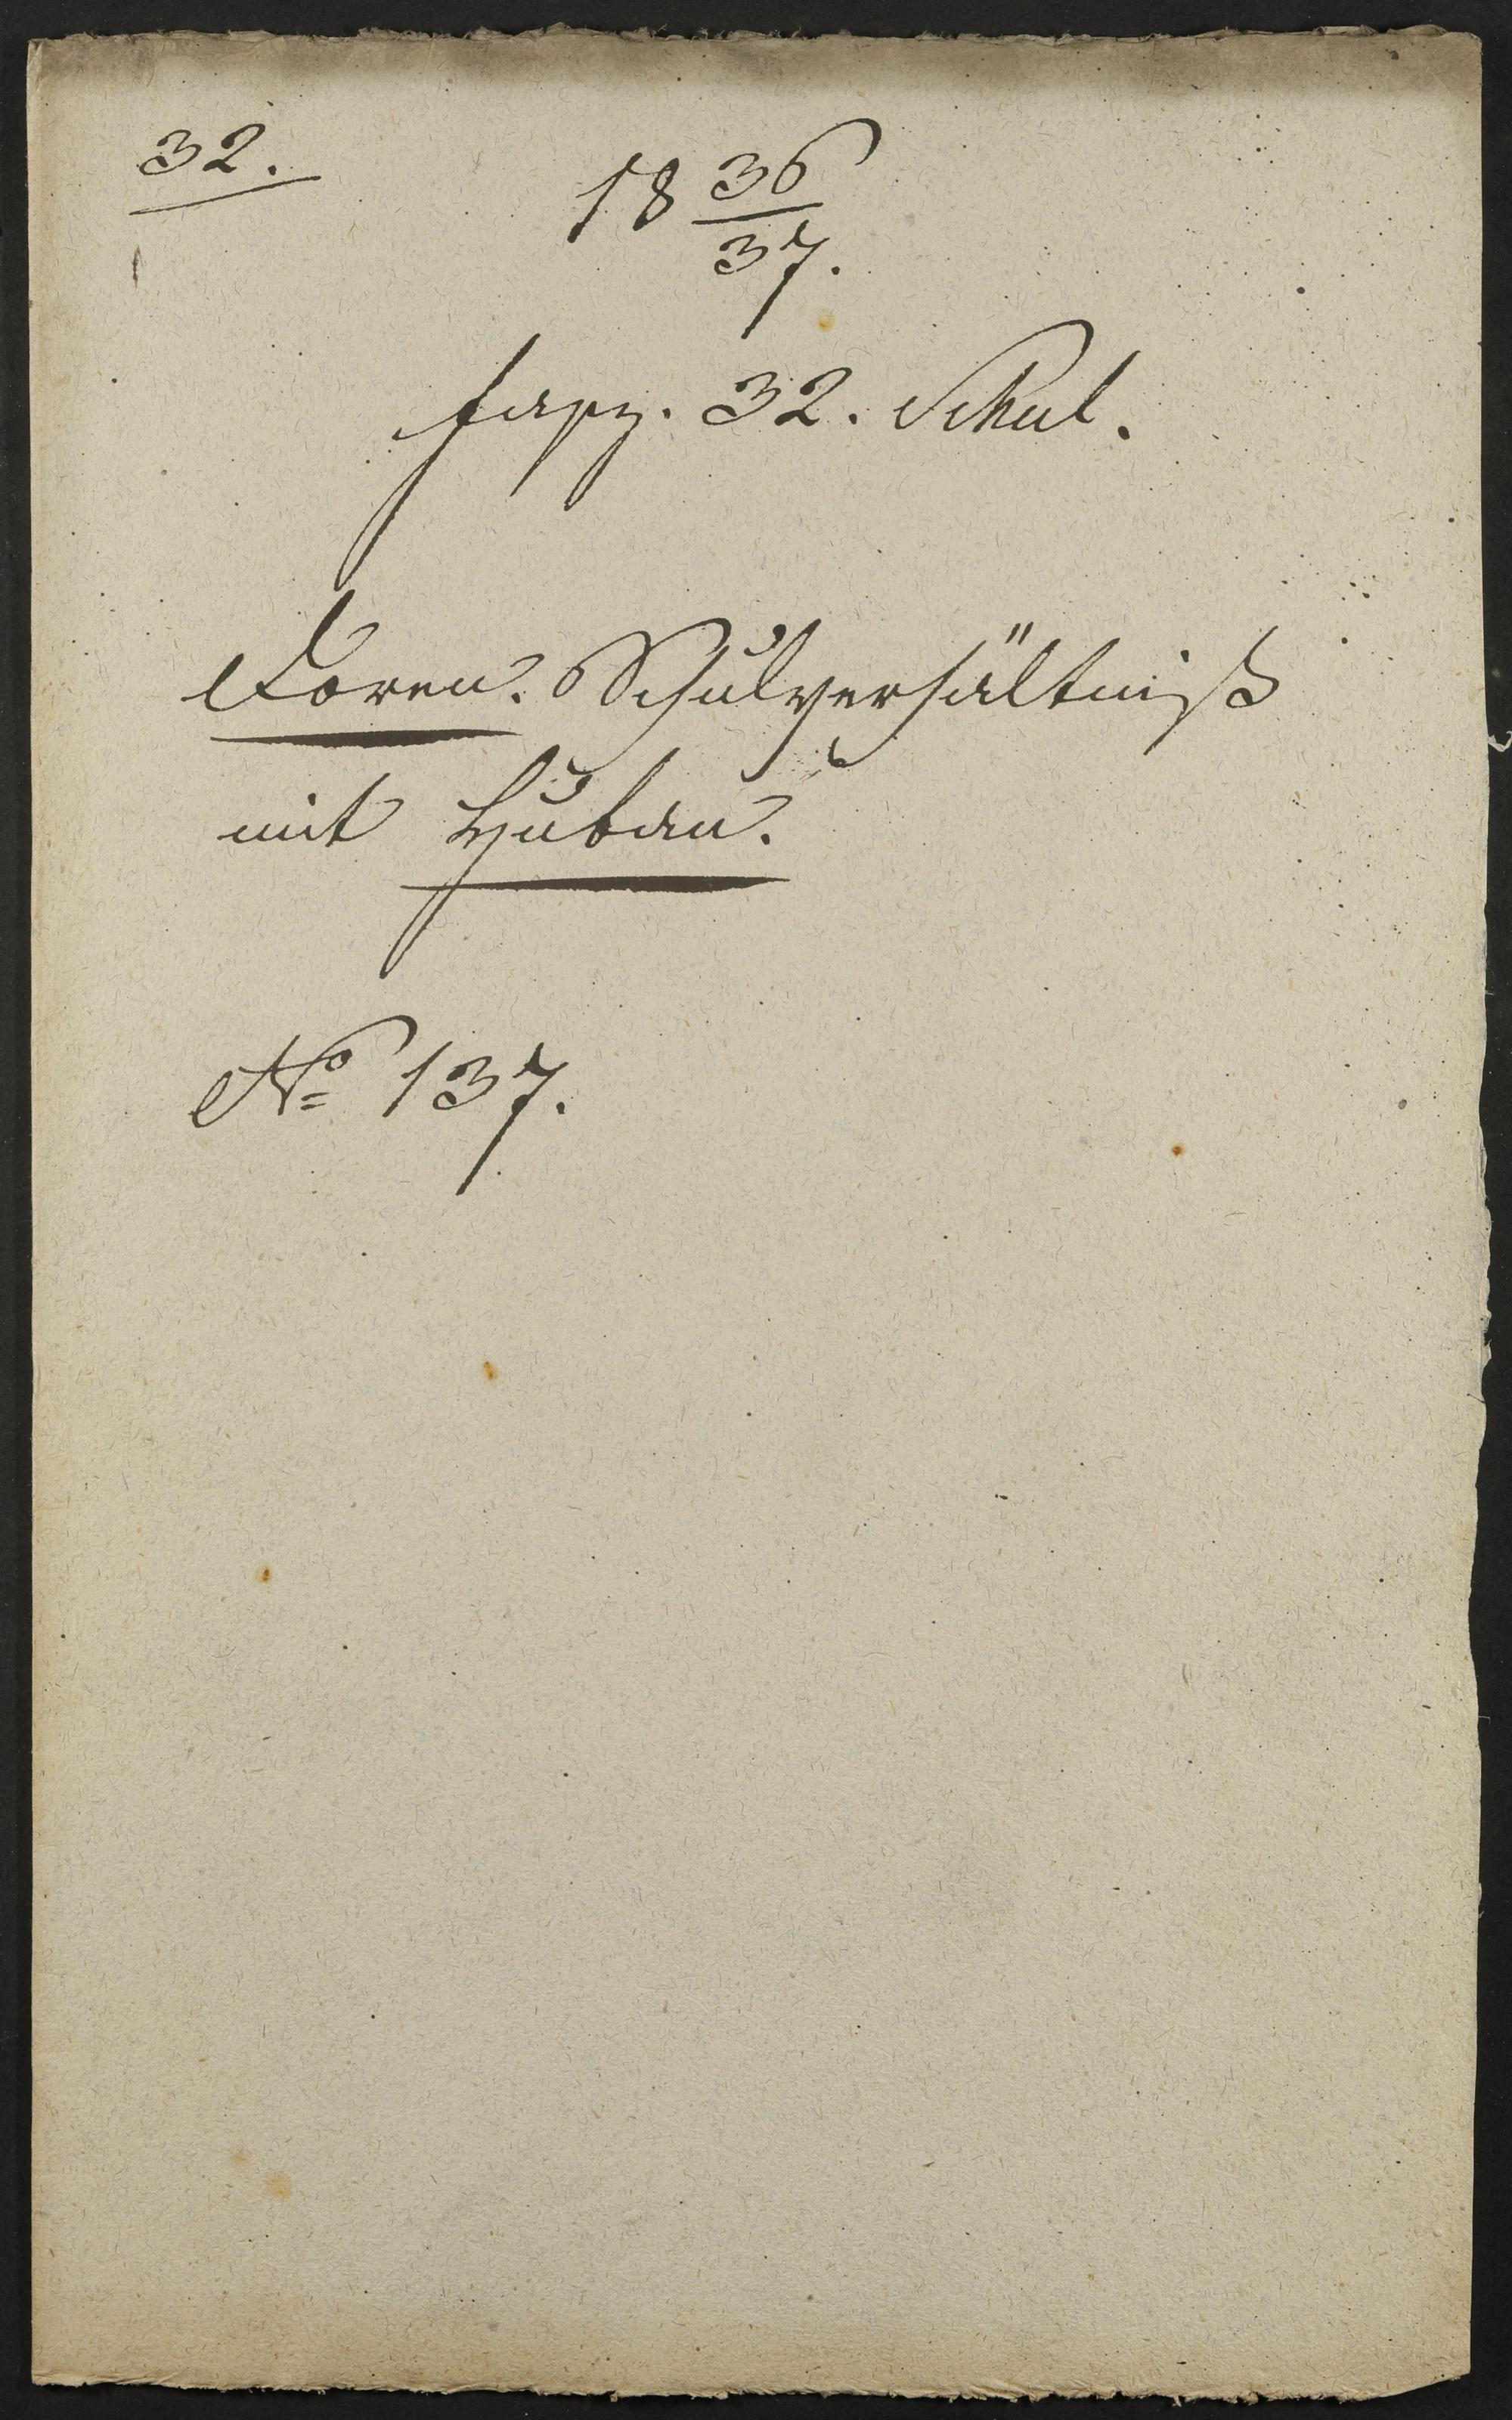 32.
18 36/37.
fasz. 32. Schul.
Doren. Schulverhältniß
mit Huban.
No 137.